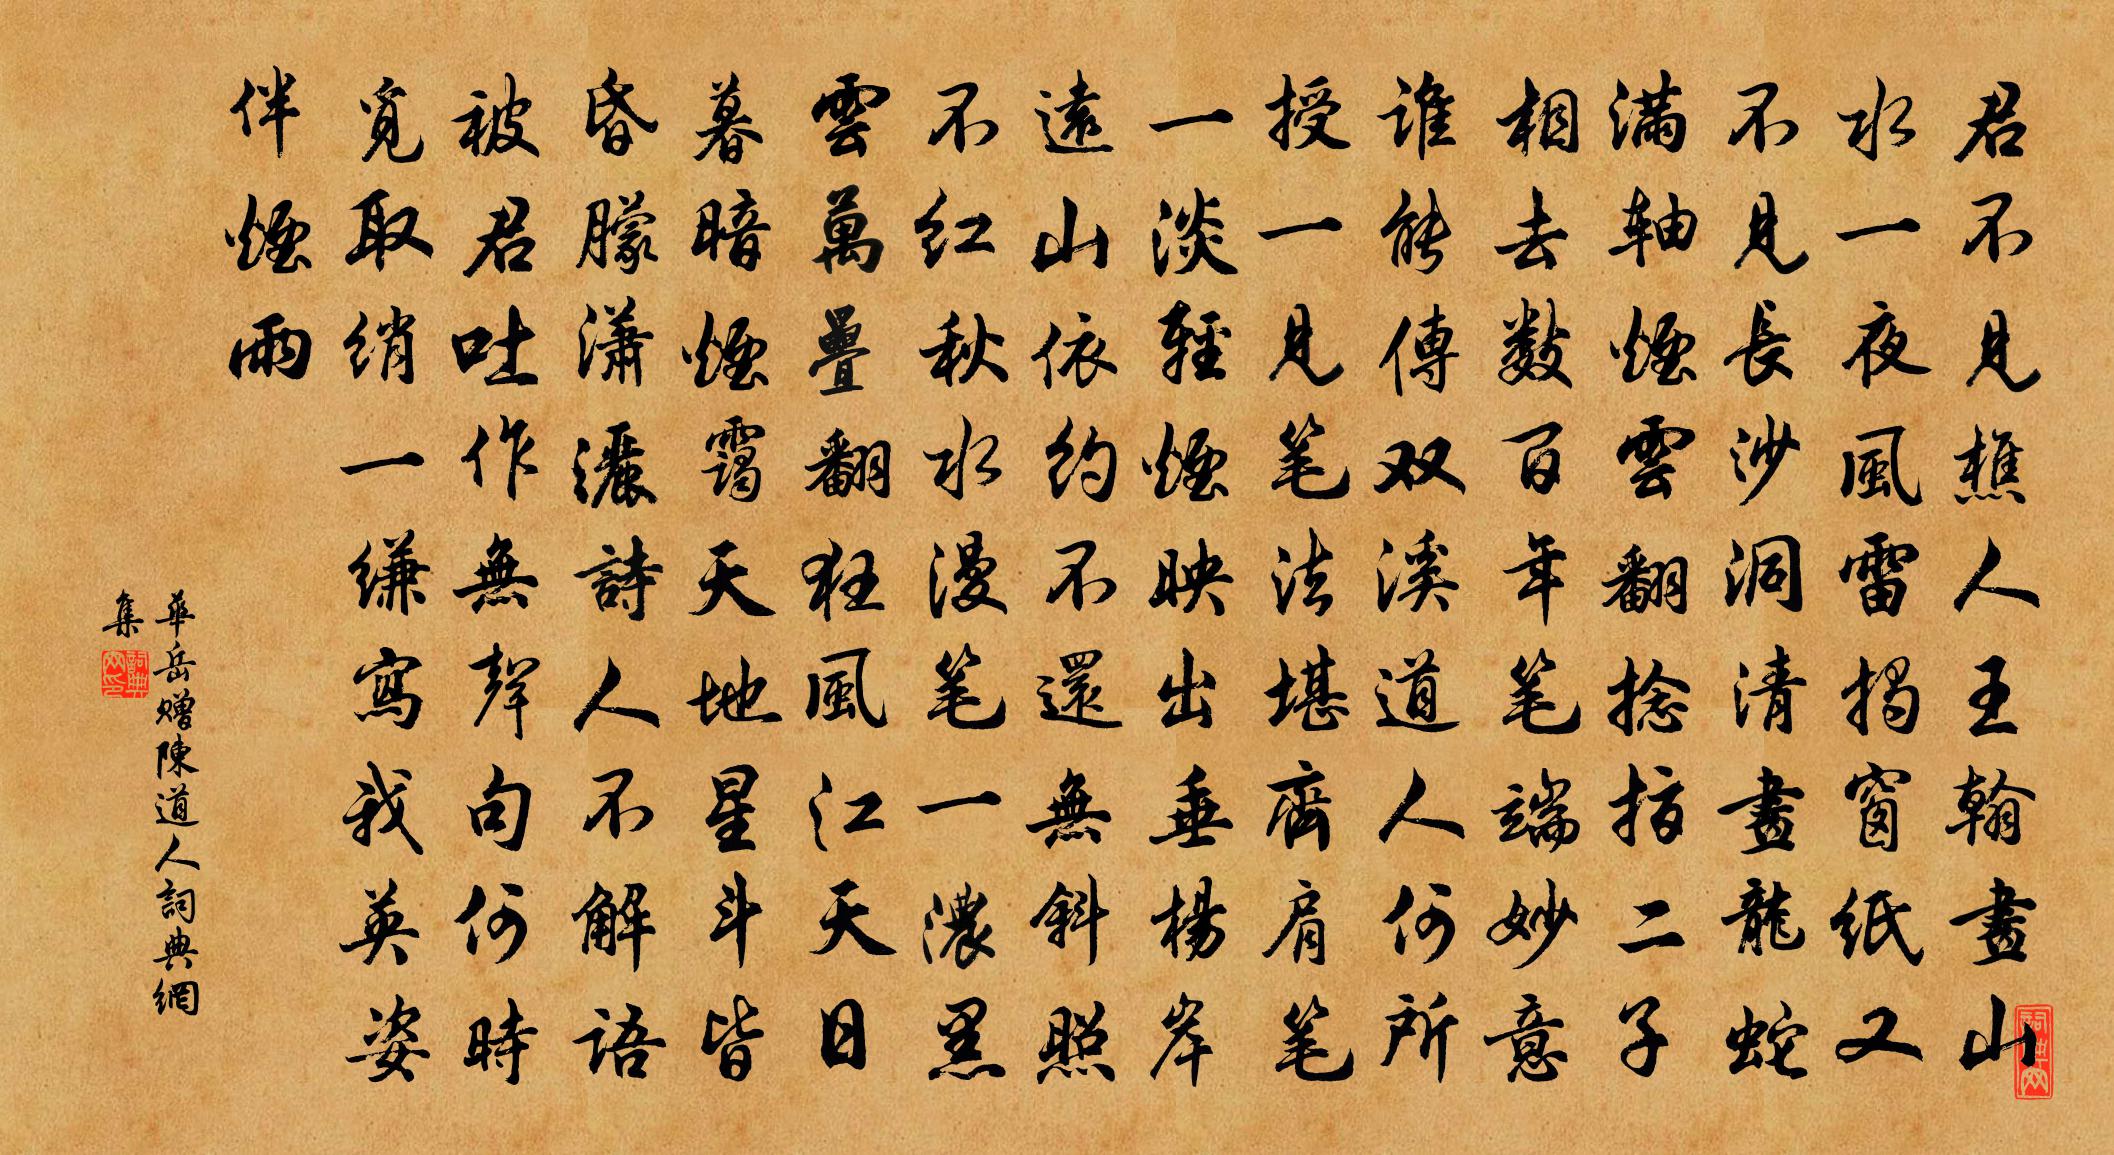 君不見樵人王翰畫山
水一夜風雷揭窗紙又
不見長沙洞清畫龍蛇
滿軸煙雲翻捻指二子
相去數百年笔端妙意
誰能傳双溪道人何所
授一見笔法堪齊肩笔
一淡輕煙映出垂楊岸
遠山依約不還無斜照
不红秋水漫笔一濃黑
雲萬疊翻狂風江天日
暮暗煙靄天地星斗皆
昏朦瀟灑詩人不解語
被君吐作無聲句何時
覓取綃一縑寫我英姿
伴煙雨
華岳贈陳道人詞典網
集